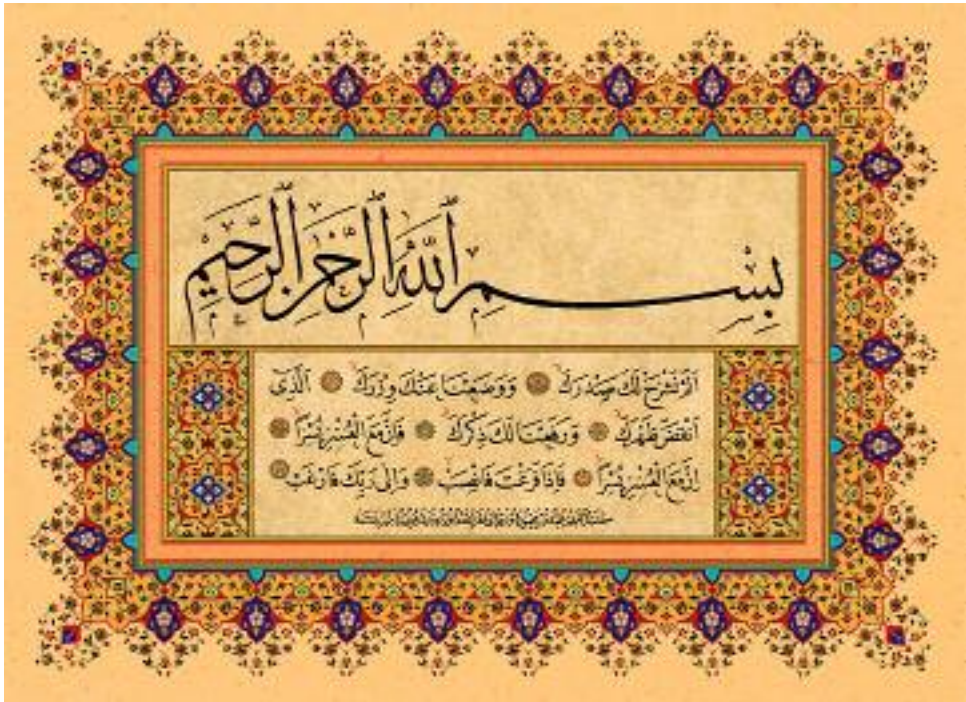 بِسْمِ اللّٰهِ الرَّحْمٰنِ الرَّحِيمِ
اَلَمْ نَشْرَحْ لَكَ صَدْرَكَ وَوَضَعْنَا عَنْكَ وِزْرَكَ اَلَّذِي
اَنْقَضَ ظَهْرَكَ وَرَفَعْنَا لَكَ ذِكْرَكَ فَاِنَّ مَعَ الْعُسْرِ يُسْرًا
اِنَّ مَعَ الْعُسْرِ يُسْرًا فَاِذَا فَرَغْتَ فَانْصَبْ وَاِلٰى رَبِّكَ فَارْغَبْ